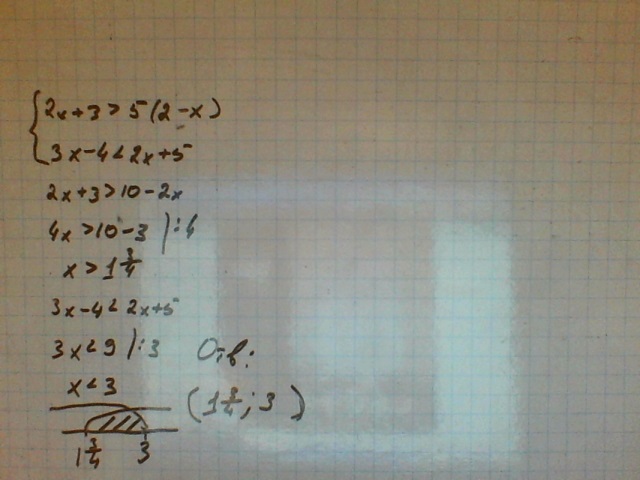 {2x+3>5(2-x)
3x-4<2x+5
2x+3>10-2x
4x>10-3 |:4
x>1 3/4
3x-4<2x+5
3x<9 |:3
x<3
1 3/4 3
Отв:
(1 3/4; 3)